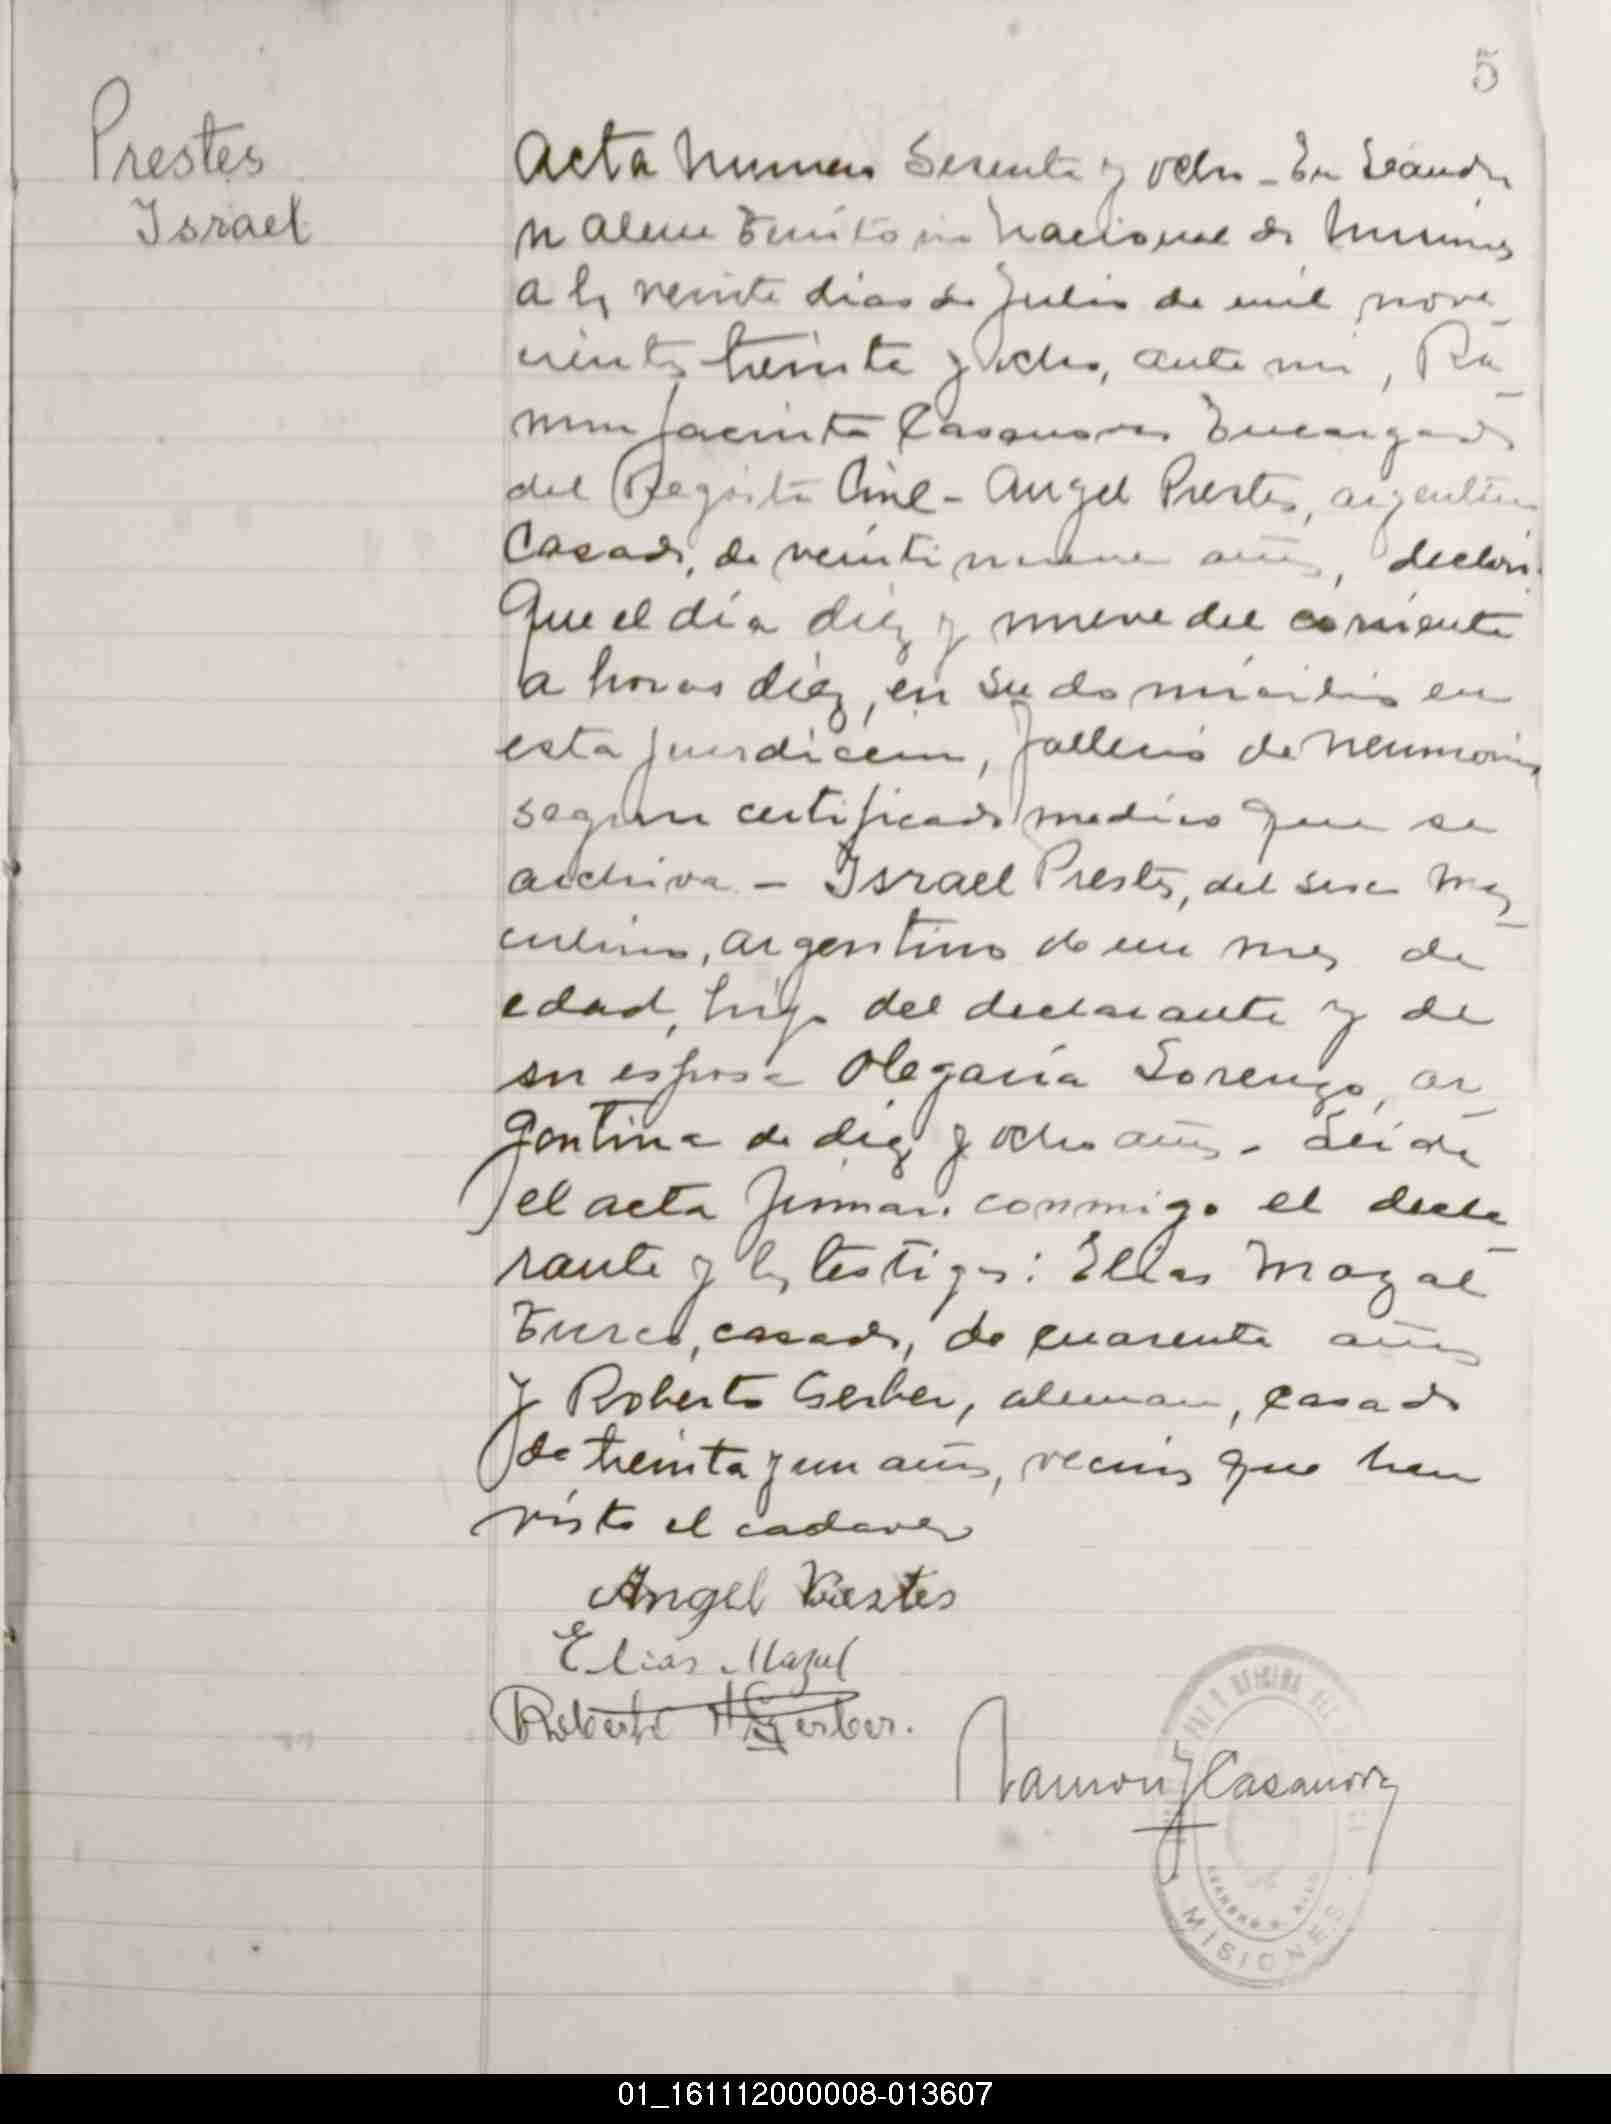 5
Prestes
Israel
Acta numero Sesenta y ocho - En Leandro
N Alem Territorio Nacional de Misiones
a los veinte dias de Julio de mil nove
cientos treinta y ocho, ante mi, Ra
mon Jacinto Casanova Encargado
del Registro Civil - Angel Prestes, argentino
Casado, de veintinueve años, declaró:
Que el día diez y nueve del corriente
a horas diez, en su domicilio en
esta jurisdicción, falleció de neumonia
segun certificado medico que se
archiva - Israel Prestes, del sexo mas
culino, argentino de un mes de
edad, hijo del declarante y de
su esposa Olegaria Lorenzo, ar
gentina de diez y ocho años. Leida
el acta firman conmigo el decla
rante y los testigos: Elias Mazal
Turco, casado, de cuarenta años
y Roberto Gerber, aleman, casado
de treinta y un años, vecinos que han
visto el cadaver
Angel Prestes
Elias Mazal
Roberto Gerber.
Ramon J Casanova
MISIONES
01_161112000008-013607